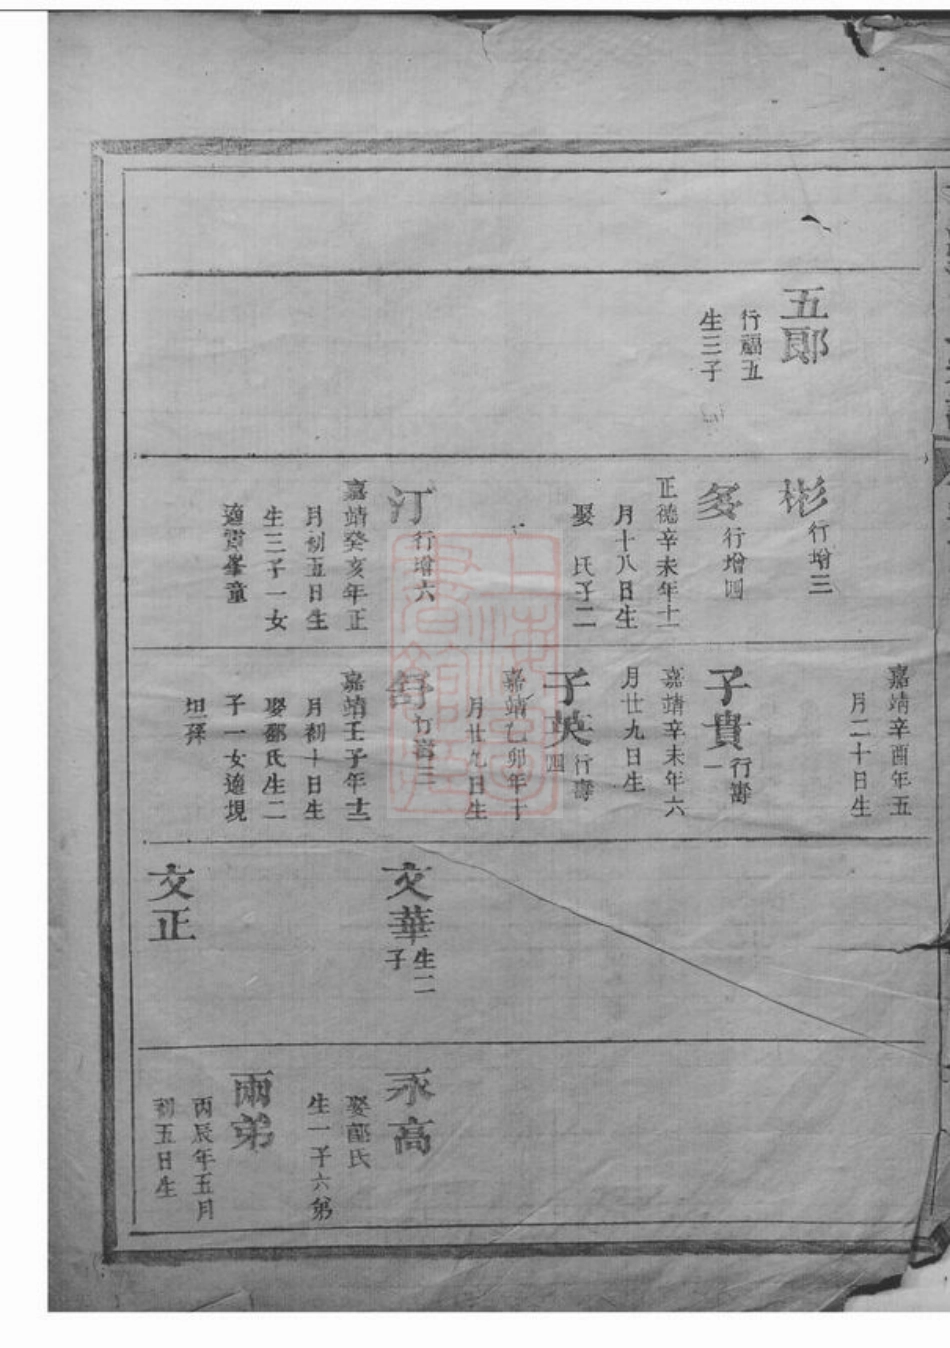 五郎
行福五
生三子
彬
行增三
㚇
行增四
正德辛未年十一
月十八日生
娶 氏子二
汀
行增六
嘉靖癸亥年正
月初五日生
生三子一女
適霄峯童
嘉靖辛酉年五
月二十日生
子貴
行壽
一
嘉靖辛未年六
月廿九日生
子英
行壽
四
嘉靖乙卯年十
月廿九日生
舒
嘉靖壬子年十二
月初十日生
娶鄒氏生二
子一女適坭
坦孫
文華
生二
子
文正
永高
娶鄒氏
生一子六弟
雨弟
丙辰年五月
初五日生